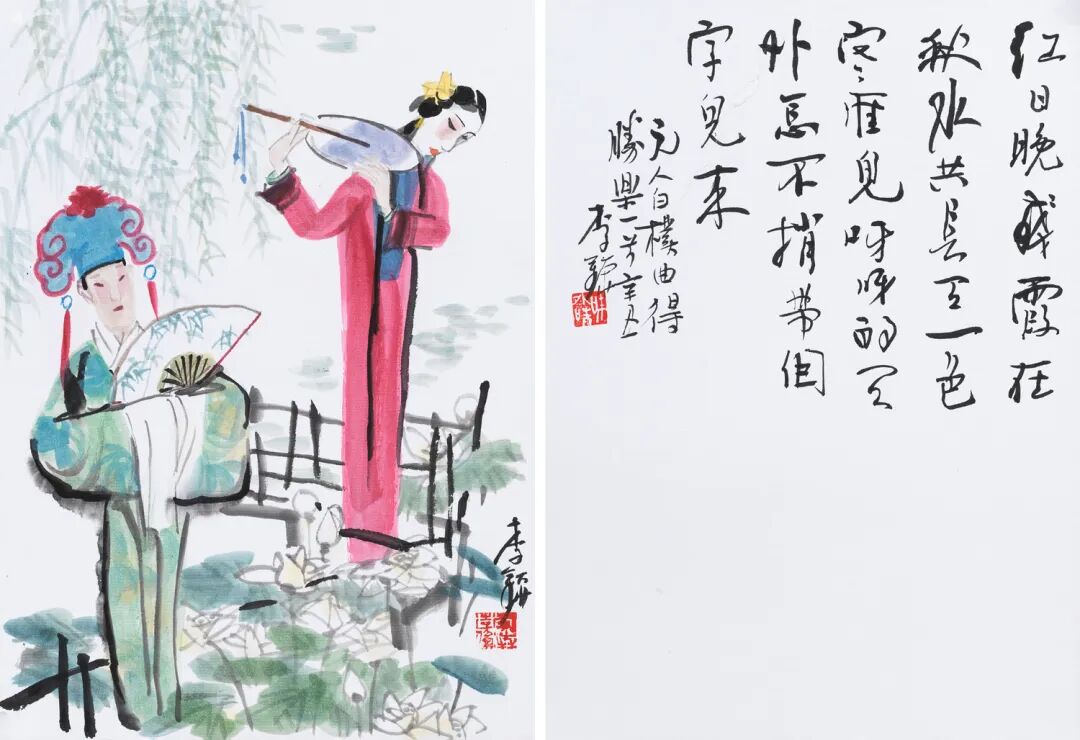 红日晚残霞在
秋水共长天一色
寒雁兒呀呀的天
外怎不捎带個
字兒来
元人白樸曲得
勝樂一首辛丑
李
李